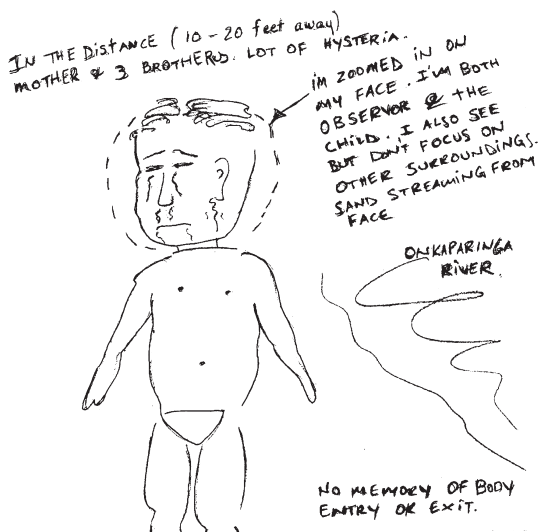 IN THE DISTANCE (10 - 20 feet away)
MOTHER & 3 BROTHERS. LOT OF HYSTERIA.
I'M ZOOMED IN ON
MY FACE. I'M BOTH
OBSERVOR & THE
CHILD. I ALSO SEE
BUT DON'T FOCUS ON
OTHER SURROUNDINGS.
SAND STREAMING FROM
FACE
ONKAPARINGA
RIVER.
NO MEMORY OF BODY
ENTRY OR EXIT.